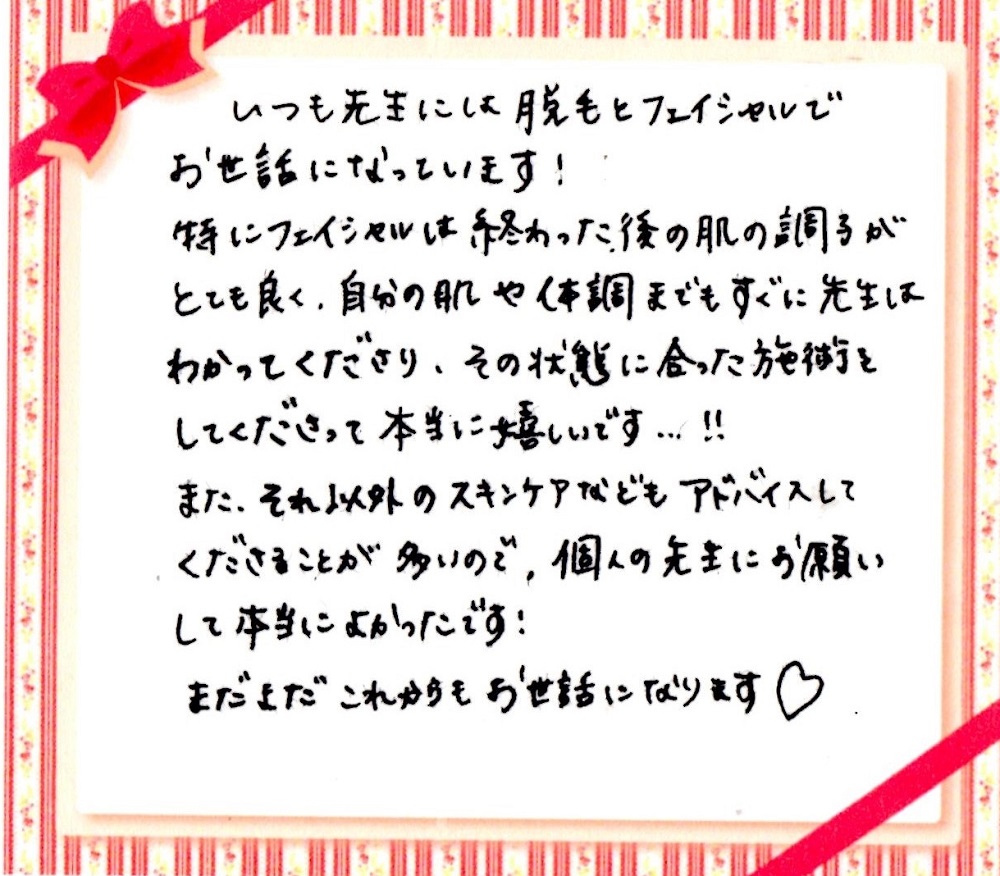 いつも先生には脱毛とフェイシャルで
お世話になっています!
特にフェイシャルは終わった後の肌の調子が
とても良く、自分の肌や体調までもすぐに先生は
わかってくださり、その状態に合った施術を
してくださって本当に嬉しいです…!!
また、それ以外のスキンケアなどもアドバイスして
くださることが多いので、個人の先生にお願い
して本当によかったです!
まだまだこれからもお世話になります♡